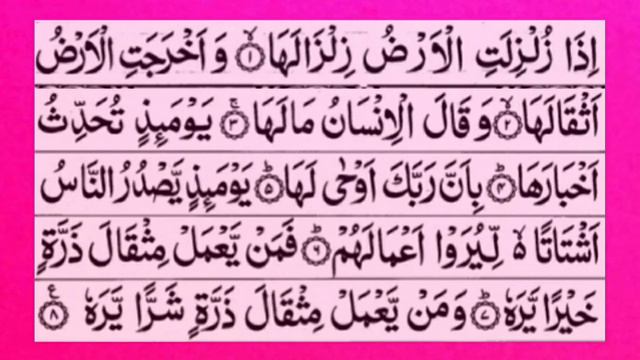 اِذَا زُلْزِلَتِ الْاَرْضُ زِلْزَالَهَا ۙ﴿۱﴾ وَ اَخْرَجَتِ الْاَرْضُ
اَثْقَالَهَا ۙ﴿۲﴾ وَ قَالَ الْاِنْسَانُ مَا لَهَا ۚ﴿۳﴾ يَوْمَئِذٍ تُحَدِّثُ
اَخْبَارَهَا ؕ﴿۴﴾ بِاَنَّ رَبَّكَ اَوْحٰى لَهَا ؕ﴿۵﴾ يَوْمَئِذٍ يَّصْدُرُ النَّاسُ
اَشْتَاتًا ۙ۬ لِّيُرَوْا اَعْمَالَهُمْ ؕ﴿۶﴾ فَمَنْ يَّعْمَلْ مِثْقَالَ ذَرَّةٍ
خَيْرًا يَّرَهٗ ؕ﴿۷﴾ وَ مَنْ يَّعْمَلْ مِثْقَالَ ذَرَّةٍ شَرًّا يَّرَهٗ ﴿۸﴾ع